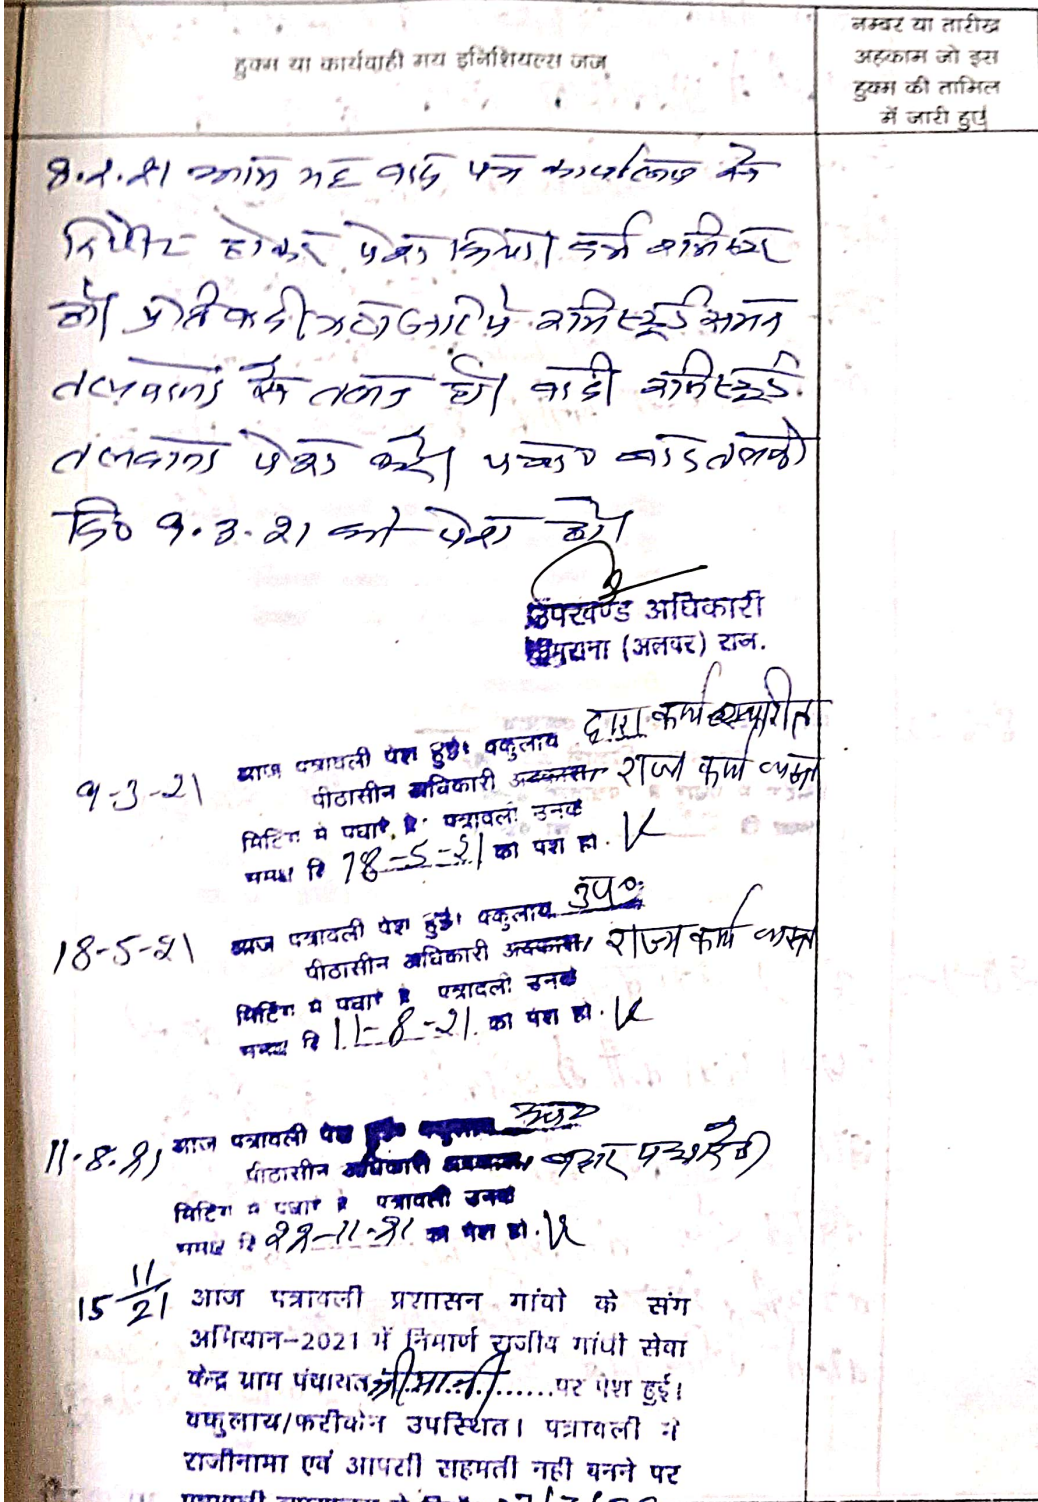 हुक्म या कार्यवाही मय इनिशियल्स जज
नम्बर या तारीख
अहकाम जो इस
हुक्म की तामिल
में जारी हुए
8.2.21 आज यह वाद पत्र कार्यालय से
रिपोर्ट होकर पेश किया। दर्ज रजिस्टर
हो। प्रतिवादीगण जरिये रजिस्टर्ड समन
तलवाना से तलब हो। वादी रजिस्टर्ड
तलवाना पेश करे। पत्रा० वास्ते तलबी
दि० 9.3.21 को पेश हो।
उपखण्ड अधिकारी
नीमराना (अलवर) राज.
9-3-21 आज पत्रावली पेश हुई। वकुलाय द्वारा कार्य
पीठासीन अधिकारी अवकाश/ राज्य कार्य व्यस्त
मिटिंग में पधारे है। पत्रावली उनके
समक्ष दि 18-5-21 को पेश हो।
18-5-21 आज पत्रावली पेश हुई। वकुलाय उप०
पीठासीन अधिकारी अवकाश/ राज्य कार्य व्यस्त
मिटिंग में पधारे है पत्रावली उनके
समक्ष दि 11-8-21 को पेश हो।
11.8.21 आज पत्रावली पेश हुई वकुलाय
पीठासीन अधिकारी अवकाश/
मिटिंग में पधारे है पत्रावली उनके
समक्ष दि 22-11-21 को पेश हो।
15 11/21 आज पत्रावली प्रशासन गांवो के संग
अभियान-2021 में निमार्ण राजीव गांधी सेवा
केन्द्र ग्राम पंचायत ......पर पेश हुई।
वकुलाय/फरीकेन उपस्थित। पत्रावली में
राजीनामा एवं आपसी सहमती नही बनने पर